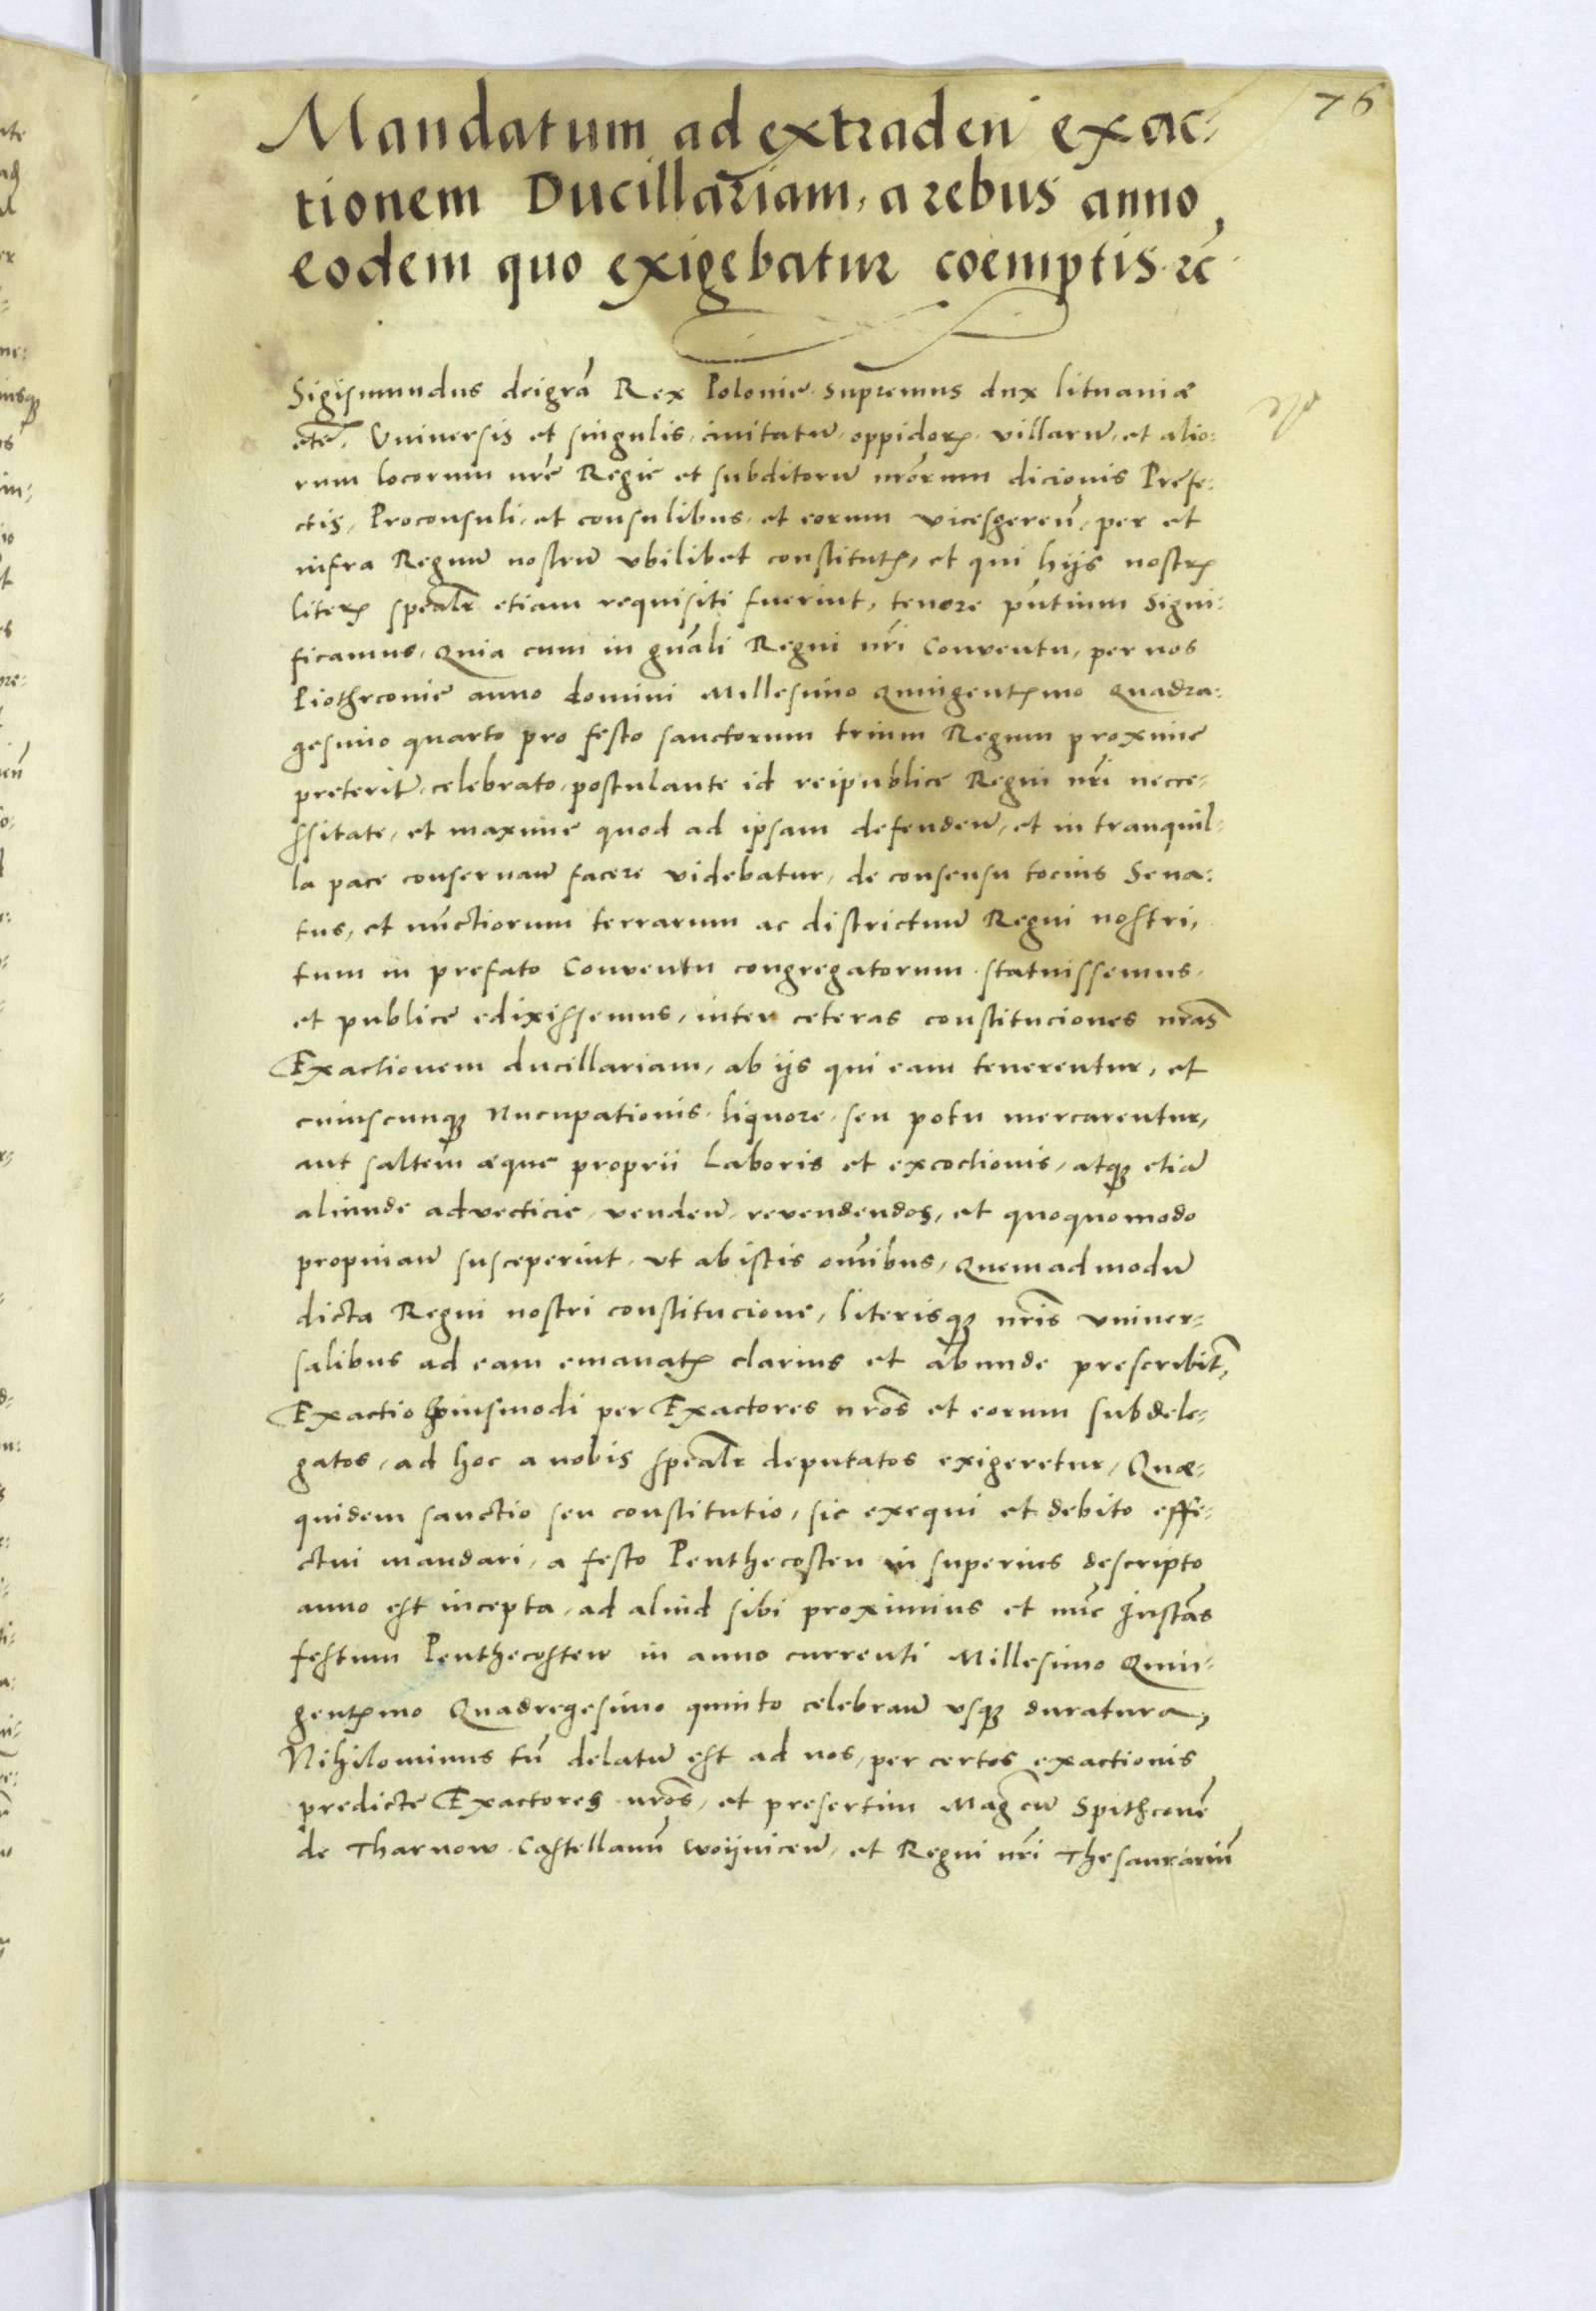 76
Mandatum ad extraden̄ exac:
tionem Ducillariam, a rebus anno
eodem quo exigebatur coemptis ꝛc̄
Sigismundus deigrā Rex Polonie supremus dux lituaniæ
etc̄. Vniuersis et singulis, ciuitatū, oppidorꝝ, villarū, et alio:
rum locorum nr̄e Regie et subditorū nr̄orum dicionis Prefe:
ctis, Proconsuli, et consulibus, et eorum vicesgeren̄, per et
infra Regnū nostrū vbilibet constitutꝭ, et qui hijs nostrꝭ
literꝭ spealr̄ etiam requisiti fuerint, tenore pn̄tium signi:
ficamus, Quia cum in gn̄ali Regni nr̄i Conuentu, per nos
Piothrconie anno domini Millesimo Quingentꝭmo Quadra:
gesimo quarto pro festo sanctorum trium Regum proxime
preterit̄, celebrato, postulante id reipublice Regni nr̄i necce:
ssitate, et maxime quod ad ipsam defenden̄, et in tranquil:
la pace conseruan̄ facere videbatur, de consensu tocius Sena:
tus, et nūctiorum terrarum ac districtuū Regni nostri,
tum in prefato Conuentu congregatorum statuissemus,
et publice edixissemus, inter ceteras constituciones nr̄as
Exactionem ducillariam, ab ijs qui eam tenerentur, et
cuiuscunqꝫ nucupationis liquore seu potu mercarentur,
aut saltem æque proprii Laboris et excoctionis, atqꝫ etiā
aliunde advecticie, venden̄, revendendos, et quoquomodo
propinan̄ susceperint, vt ab istis om̄ibus, Quemadmodū
dicta Regni nostri constitucione, literisqꝫ nr̄is vniuer:
salibus ad eam emanatꝭ clarius et abunde prescribit̄,
Exactio huiusmodi per Exactores nr̄os et eorum subdele:
gatos, ad hoc a nobis spealr̄ deputatos exigeretur, Quæ:
quidem sanctio seu constitutio, sic exequi et debito effe:
ctui mandari, a festo Penthecosten in superius descripto
anno est incepta, ad aliud sibi proximius et nūc Instās
festum Penthecosten in anno currenti Millesimo Quin:
gentꝭmo Quadregesimo quinto celebran̄ vsqꝫ duratura,
Nihilominus tn̄ delatū est ad nos, per certos exactionis
predicte Exactores nr̄os, et presertim Mag̅cū Spithconē
de Tharnow Castellanū woijnicen̄, et Regni nr̄i Thesaurariū